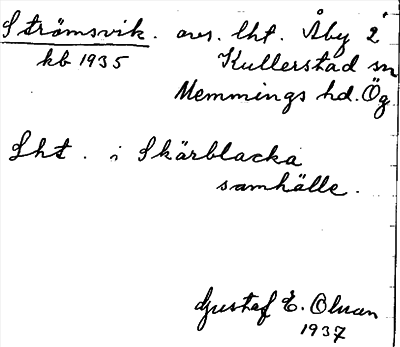 Strömsvik. avs. lht. Åby 2¹
kb 1935 Kullerstad sn
Memmings hd. Ög.
Lht. i Skärblacka
samhälle.
Gustaf E. Olman
1937